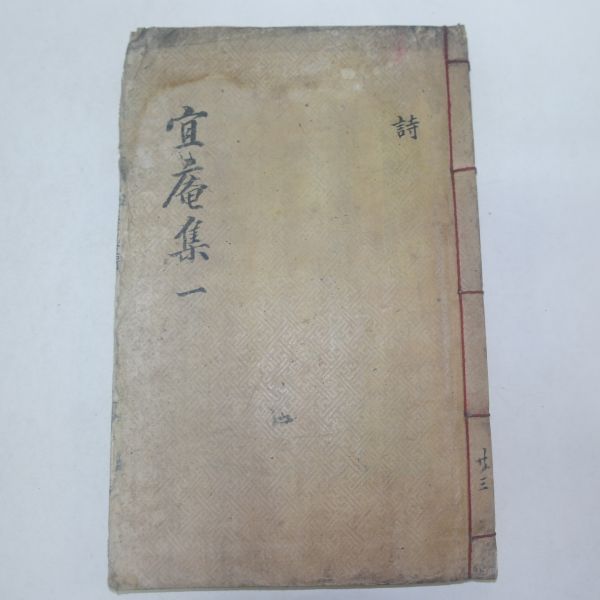 宜庵集 一
詩
共三